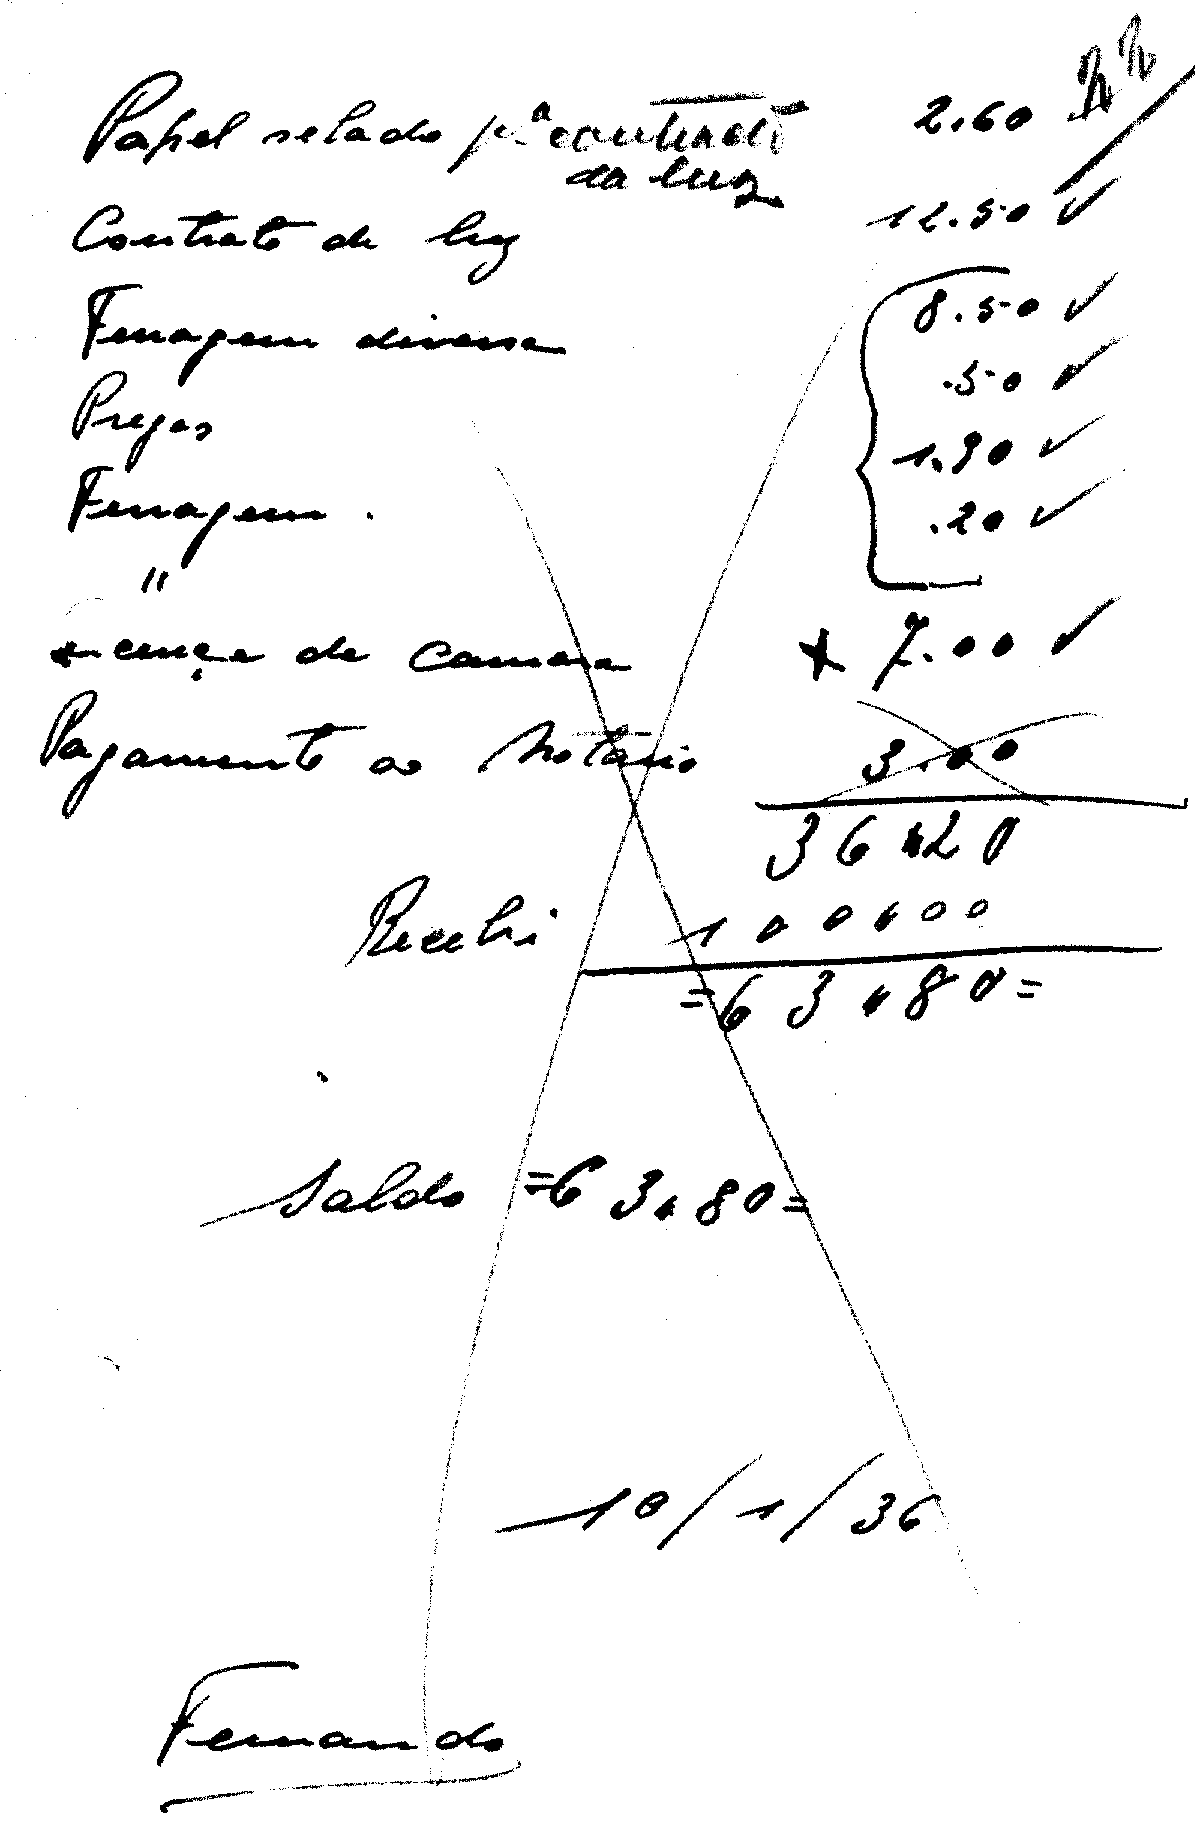 Papel selado pª contrato 2.60
da luz
Contrato de luz 12.50 ✓
Ferragem diversa 8.50 ✓
Pregos .50 ✓
Ferragem . 1.90 ✓
" .20 ✓
Licença de Camara x 7.00 ✓
Pagamento ao Notario 3.00
36.20
Recebi 100.00
=63.80=
Saldo =63.80=
10/1/36
Fernando